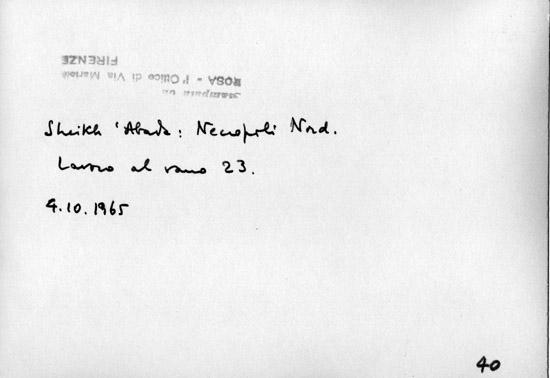 Stampata da
ROSA - l'Ottico di Via Martelli
FIRENZE
Sheikh 'Abada: Necropoli Nord.
Lavoro al vano 23.
9.10.1965
40